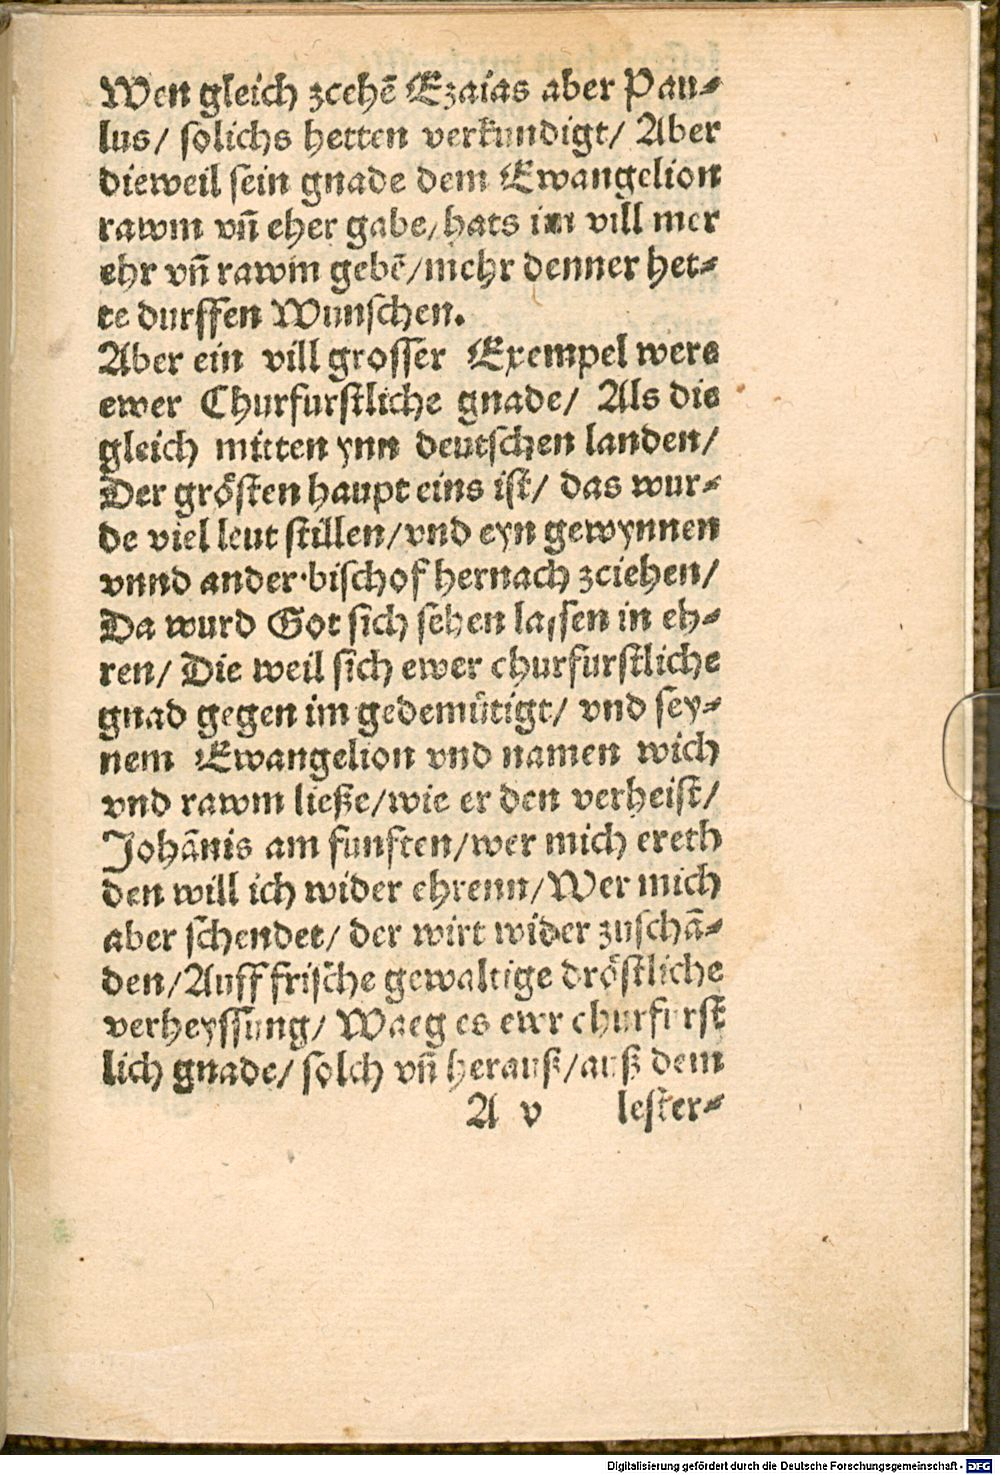 Wen gleich zcehē Ezaias aber Pau⸗
lus/ solichs hetten verkundigt/ Aber
dieweil sein gnade dem Ewangelion
rawm vn̄ eher gabe/hats im vill mer
ehr vn̄ rawm gebē/mehr denner het⸗
te durffen Wunschen.
Aber ein vill grosser Exempel were
ewer Churfurstliche gnade/ Als die
gleich mitten ynn deutschen landen/
Der grösten haupt eins ist/ das wur⸗
de viel leut stillen/vnd eyn gewynnen
vnnd ander·bischof hernach zciehen/
Da wurd Got sich sehen lassen in eh⸗
ren/ Die weil sich ewer churfurstliche
gnad gegen im gedemütigt/ vnd sey⸗
nem Ewangelion vnd namen wich
vnd rawm ließe/wie er den verheist/
Johānis am funften/wer mich ereth
den will ich wider ehrenn/Wer mich
aber schendet/ der wirt wider zuschā⸗
den/Auff frische gewaltige dröstliche
verheyssung/ Waeg es ewr churfurst
lich gnade/ solch vn̄ herauß/auß dem
A v lester⸗
Digitalisierung gefördert durch die Deutsche Forschungsgemeinschaft - DFG